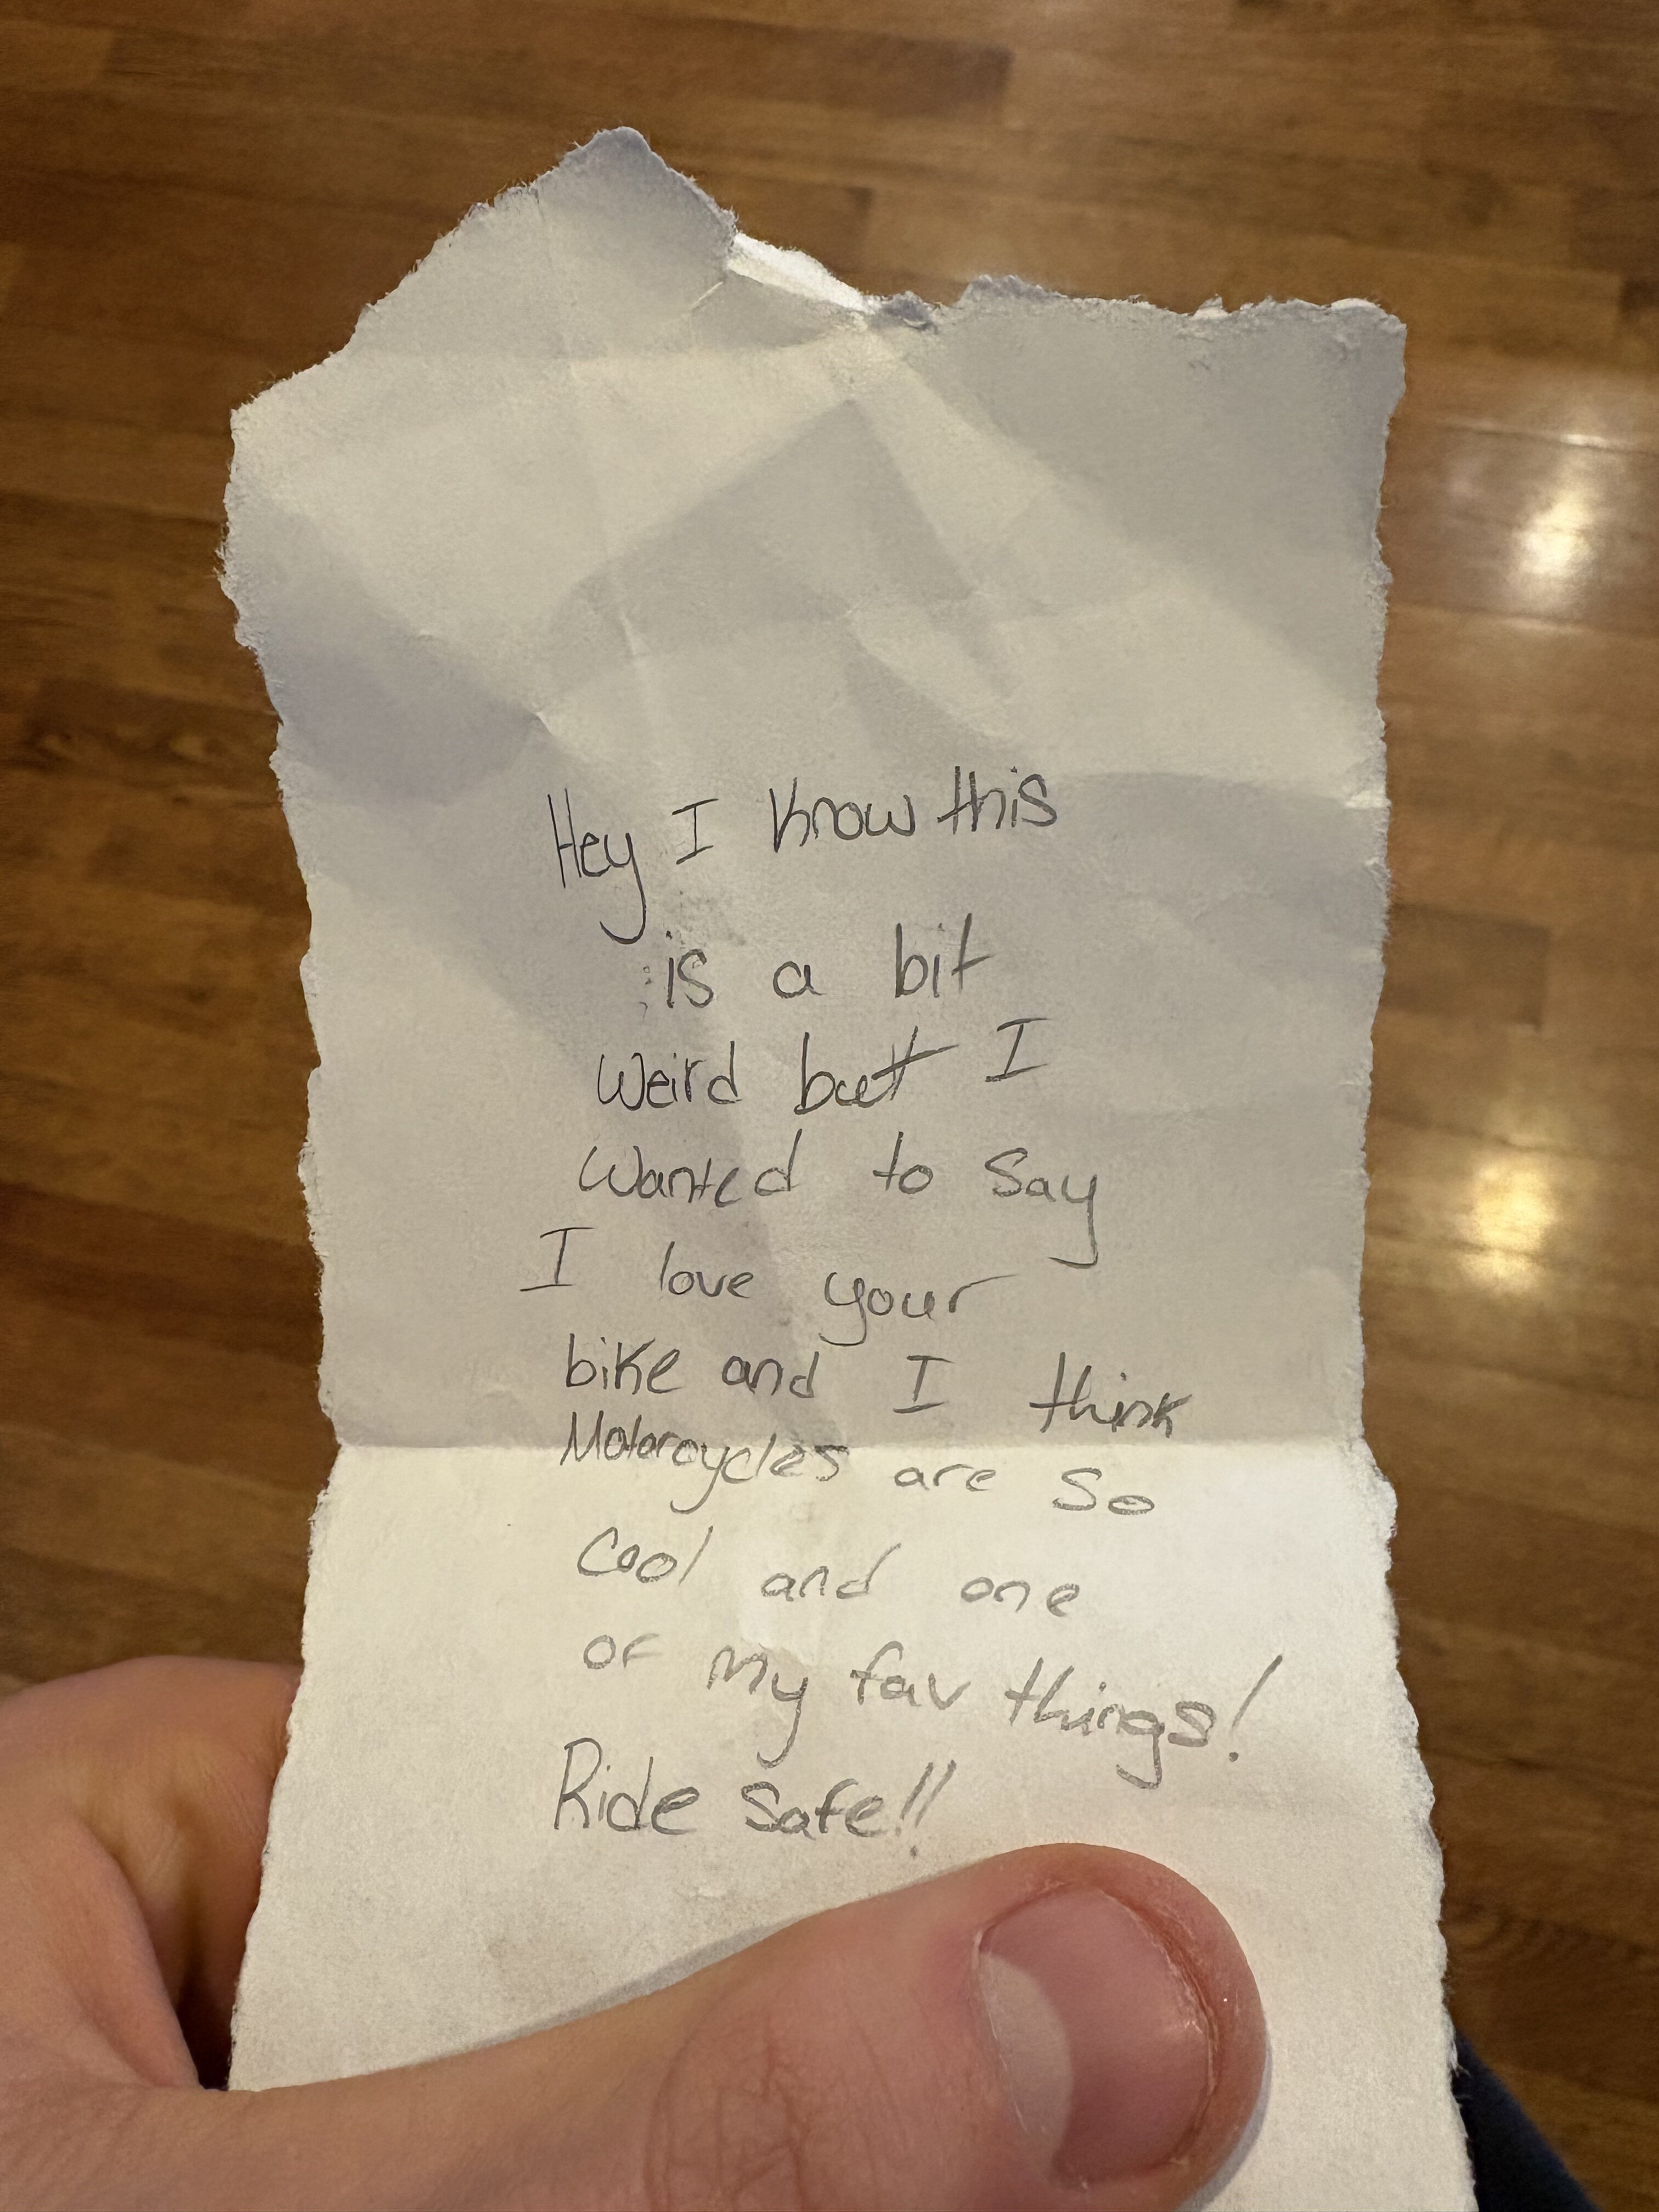 Hey I know this
is a bit
weird but I
wanted to say
I love your
bike and I think
Motorcycles are so
cool and one
of my fav things!
Ride safe!!